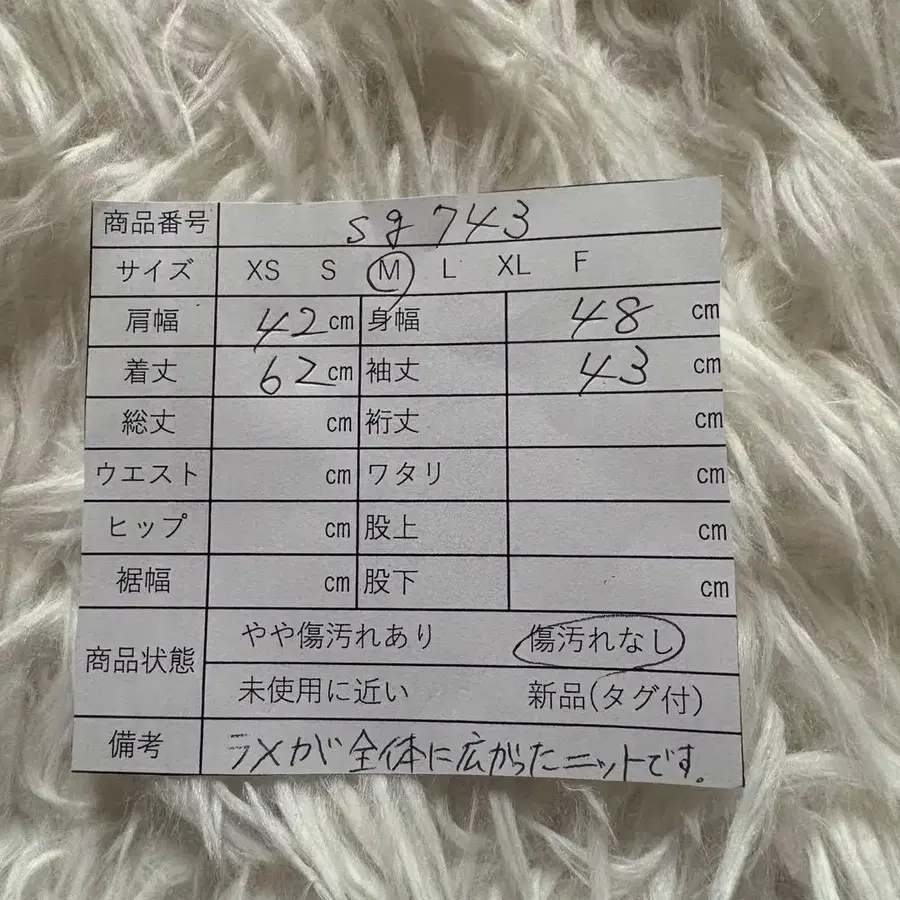 商品番号 sg743
サイズ XS S M L XL F
肩幅 42cm 身幅 48 cm
着丈 62cm 袖丈 43 cm
総丈 cm 裄丈 cm
ウエスト cm ワタリ cm
ヒップ cm 股上 cm
裾幅 cm 股下 cm
商品状態 やや傷汚れあり 傷汚れなし
未使用に近い 新品(タグ付)
備考 ラメが全体に広がったニットです。